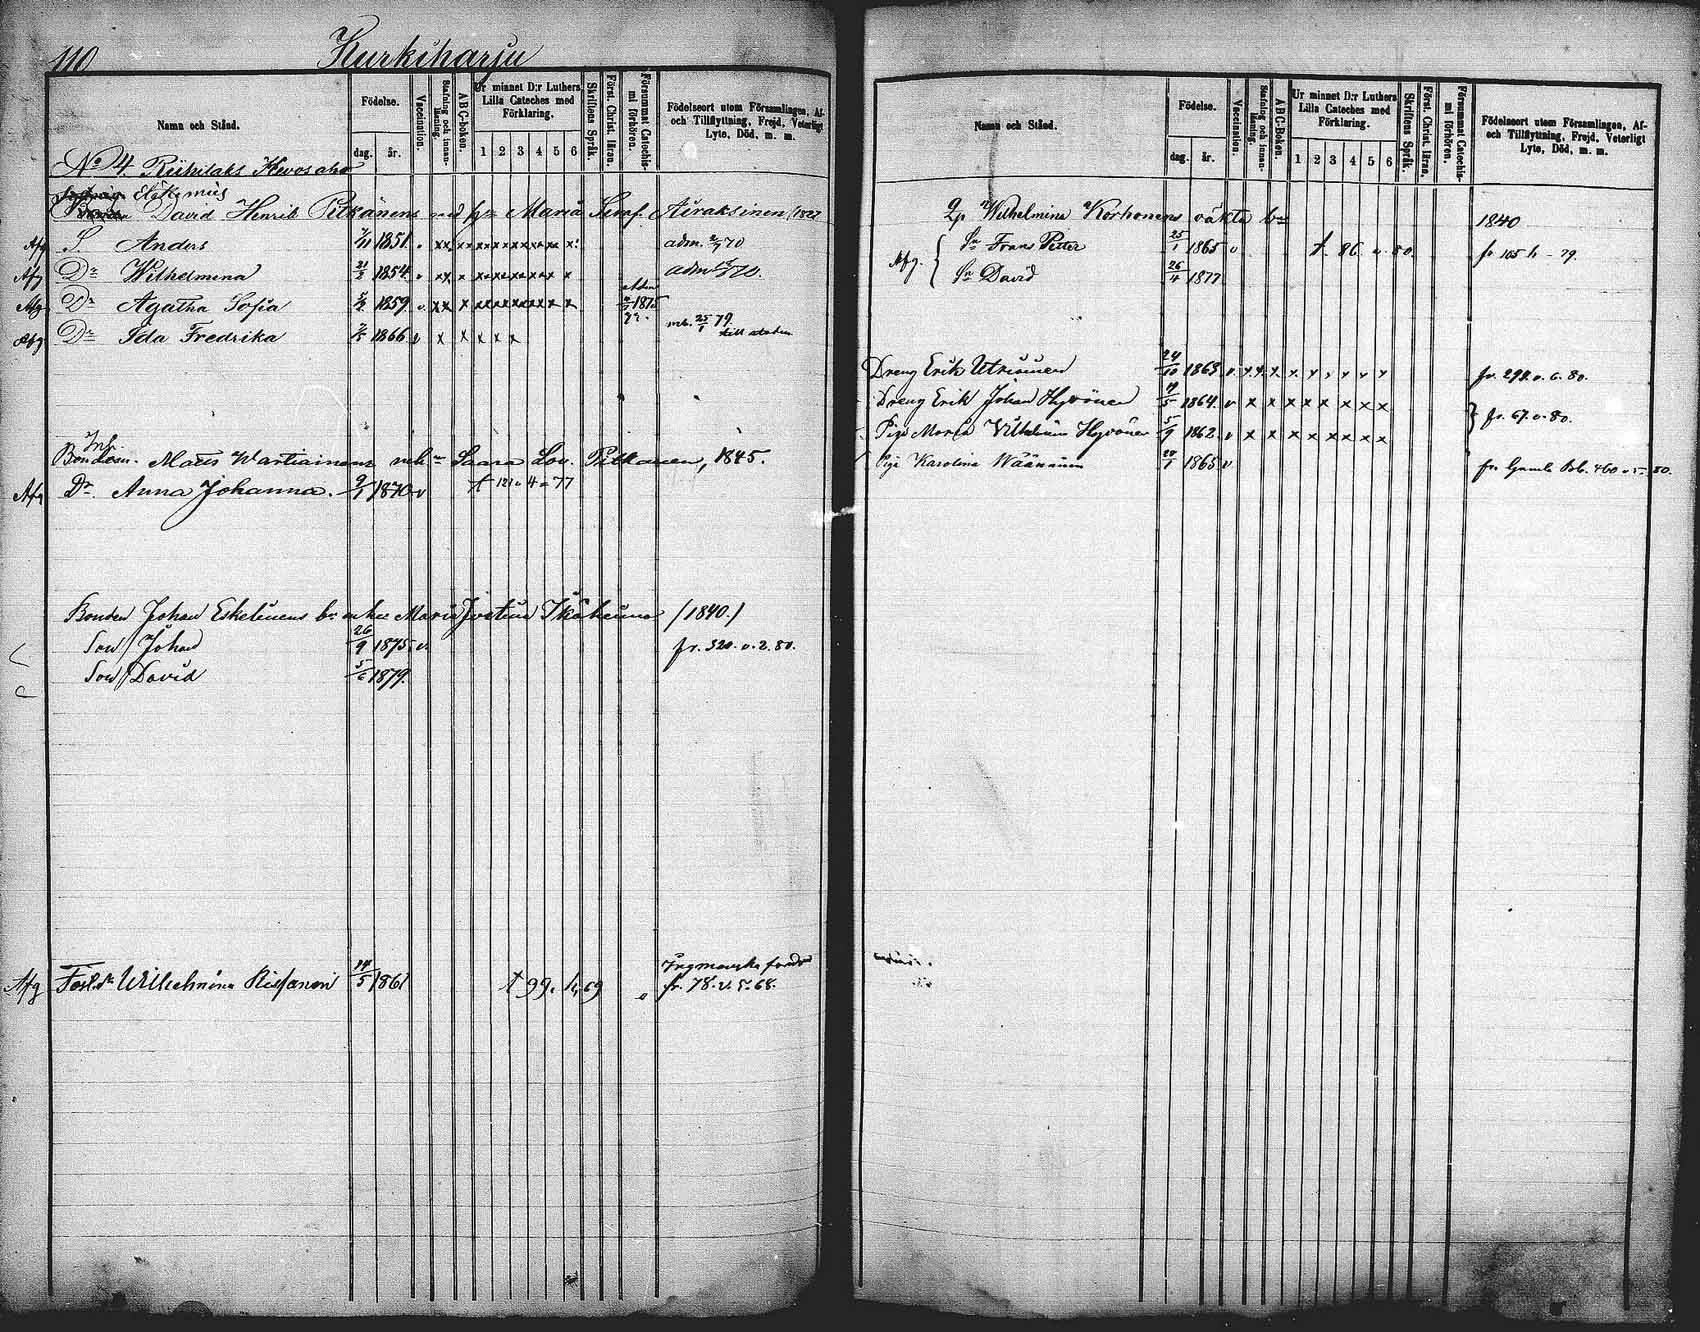 110 Kurkiharju
Namn och Stånd.
Födelse.
dag. år.
Vaccination.
Stafning och innan-läsning.
ABC-boken.
Ur minnet D:r Luthers Lilla Cateches med Förklaring.
1 2 3 4 5 6
Skriftens Språk.
Först. Christ. läran.
Försummat Catechis-mi förhören.
Födelseort utom Församlingen, Af-
och Tillflyttning, Frejd, Veterligt
Lyte, Död, m. m.
No 4. Riihilaks Hevosaho
David Henrik Pitkänens Maria Airaksinen /1827
Afg S. Anders 7/11 1851. v xx x x x x x x x x adm. 70
Afg Dr Wilhelmina 21/2 1854. v xx x x x x x x x x adm 70.
Afg Dr Agatha Sofia 1859. v. xx x x x x x x x x 1875 79.
Afg Dr Ida Fredrika 1866 v x x x x x mb. 25/1 79. till staden
Inh.
Bonden Mats Wartiainens Saara Lov. Pitkänen, 1845.
Afg Dr Anna Johanna. 9/1 1870 v t 121 v 4 77
Bonden Johan Eskelinens Maria Ikäheimo /1840./
Son Johan 26/9 1875. v. fr. 320. v. 2. 80.
Son David 5/6 1879.
Afg Wilhelmina Rissanen 14/5 1861 t 99. 69
fr. 78. v. 5. 68.
Namn och Stånd.
Födelse.
dag. år.
Vaccination.
Stafning och innan-läsning.
ABC-Boken.
Ur minnet D:r Luthers Lilla Cateches med Förklaring.
1 2 3 4 5 6
Skriftens Språk.
Först. Christ. läran.
Försummat Catechis-mi förhören.
Födelseort utom Församlingen, Af-
och Tillflyttning, Frejd, Veterligt
Lyte, Död, m. m.
Wilhelmina Korhonens oäkta 1840
Afg. Sn Frans Petter 25/1 1865 v t. 86. v. 80. fr 105 79.
Sn David 26/4 1877
Dreng Erik Utriainen 24/10 1863. v. x x. x x x x x x x fr. 298. v. 6. 80.
Dreng Erik Johan Hyvönen 1864. v x x x x x x x x fr. 67. v. 80.
Piga Maria Wilhelmina Hyvönen 5/9 1862. v x x x x x x x x
Piga Karolina Väänänen 1865 v fr. Gamla Bok. 460 v. 5. 80.